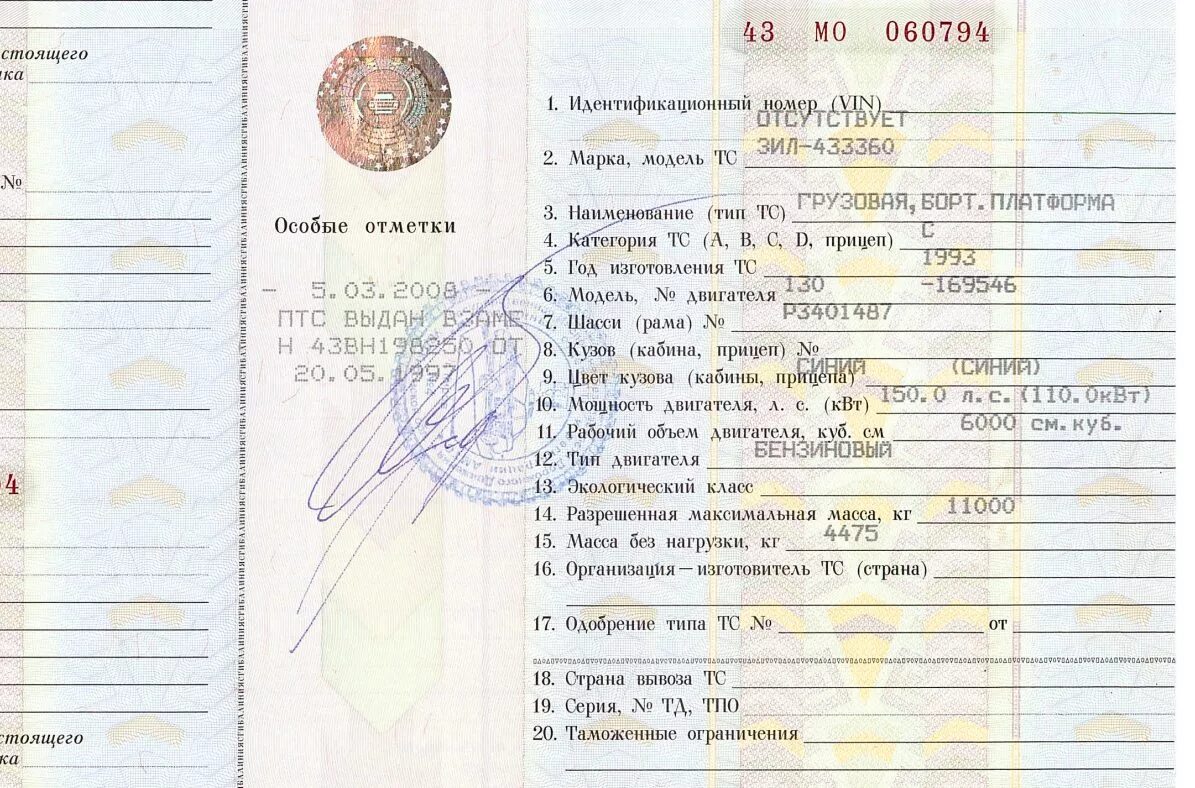 стоящего
ка
№
4
стоящего
ка
Особые отметки
- 5.03.2008 -
ПТС ВЫДАН ВЗАМЕ
Н 43ВН198250 ОТ
20.05.1997
43 МО 060794
1. Идентификационный номер (VIN)
ОТСУТСТВУЕТ
2. Марка, модель ТС ЗИЛ-433360
3. Наименование (тип ТС) ГРУЗОВАЯ,БОРТ.ПЛАТФОРМА
4. Категория ТС (А, В, С, D, прицеп) С
5. Год изготовления ТС 1993
6. Модель, № двигателя 130 -169546
7. Шасси (рама) № Р3401487
8. Кузов (кабина, прицеп) №
9. Цвет кузова (кабины, прицепа) СИНИЙ (СИНИЙ)
10. Мощность двигателя, л. с. (кВт) 150.0 л.с.(110.0кВт)
11. Рабочий объем двигателя, куб. см 6000 см.куб.
12. Тип двигателя БЕНЗИНОВЫЙ
13. Экологический класс
14. Разрешенная максимальная масса, кг 11000
15. Масса без нагрузки, кг 4475
16. Организация—изготовитель ТС (страна)
17. Одобрение типа ТС № от
18. Страна вывоза ТС
19. Серия, № ТД, ТПО
20. Таможенные ограничения